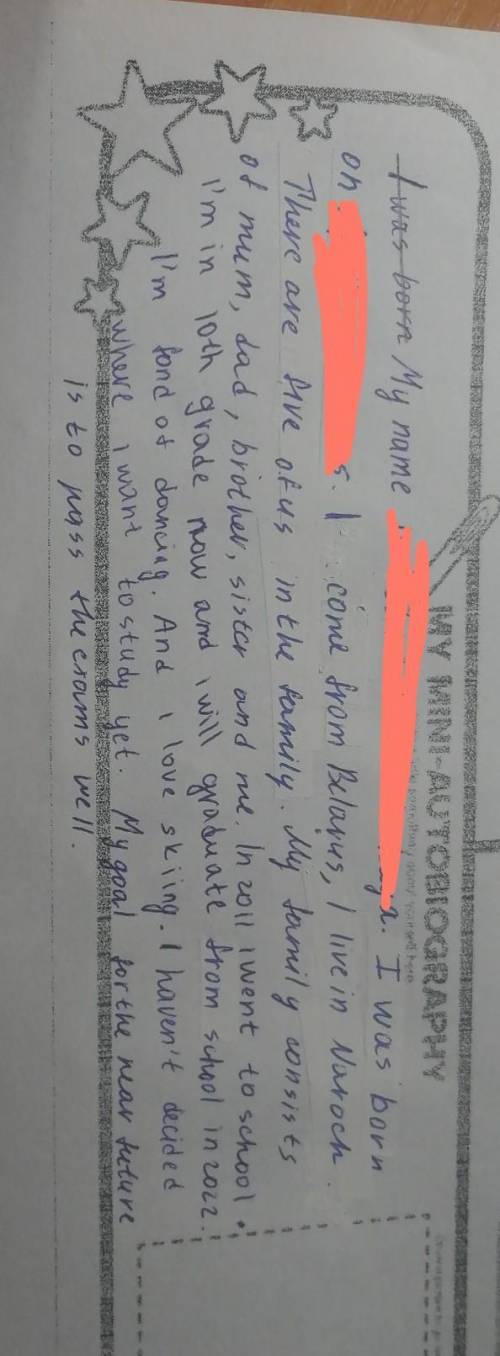 MY MINI-AUTOBIOGRAPHY
I was born My name . I was born
on s. I come from Belarus, I live in Naroch.
There are five of us in the family. My family consists
of mum, dad, brother, sister and me. In 2011 I went to school.
I'm in 10th grade now and i will graduate from school in 2022.
I'm fond of dancing. And i love skiing. I haven't decided
where i want to study yet. My goal for the near future
is to pass the exams well.